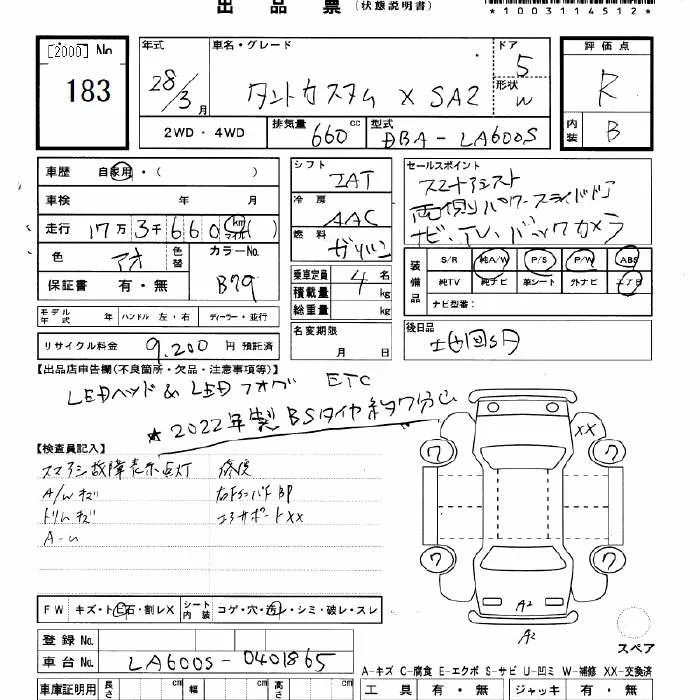 出品票(状態説明書)
*1003114512*
[2000] No 183
年式 28/3月
車名・グレード タントカスタム X SA2
ドア 5
形状 W
評価点 R
内装 B
2WD・4WD
排気量 660cc
型式 DBA-LA600S
車歴 自家用・( )
車検 年 月
走行 17万3千660 km マイル ( )
色 アオ
色替
カラーNo. B79
保証書 有・無
シフト IAT
冷房 AAC
燃料 ガソリン
乗車定員 4名
積載量 kg
総重量 kg
セールスポイント
スマートアシスト
両側パワースライドドア
ナビ、TV、バックカメラ
装備品 S/R 純A/W P/S P/W ABS
純TV 純ナビ 革シート 外ナビ エアB
ナビ型番:
モデル年式 年 ハンドル 左・右 ディーラー・並行
名変期限 月 日
後日品
リサイクル料金 9.200円 預託済
【出品店申告欄(不良箇所・欠品・注意事項等)】
LEDヘッド & LEDフォグ ETC
★2022年製BSタイヤ約7分山
【検査員記入】
スマアシ故障表示点灯 修復
A/Wキズ
トリムキズ
コアサポートXX
A-U
XX
ワ ワ
ワ ワ
A2
A2
スペア
FW キズ・ト・石・割レX
シート内装 コゲ・穴・・シミ・破レ・スレ
登録No.
車台No. LA600S-0401865
A-キズ C-腐食 E-エクボ S-サビ U-凹ミ W-補修 XX-交換済
車庫証明用 長さ cm 幅 cm 高さ cm
工具 有・無 ジャッキ 有・無